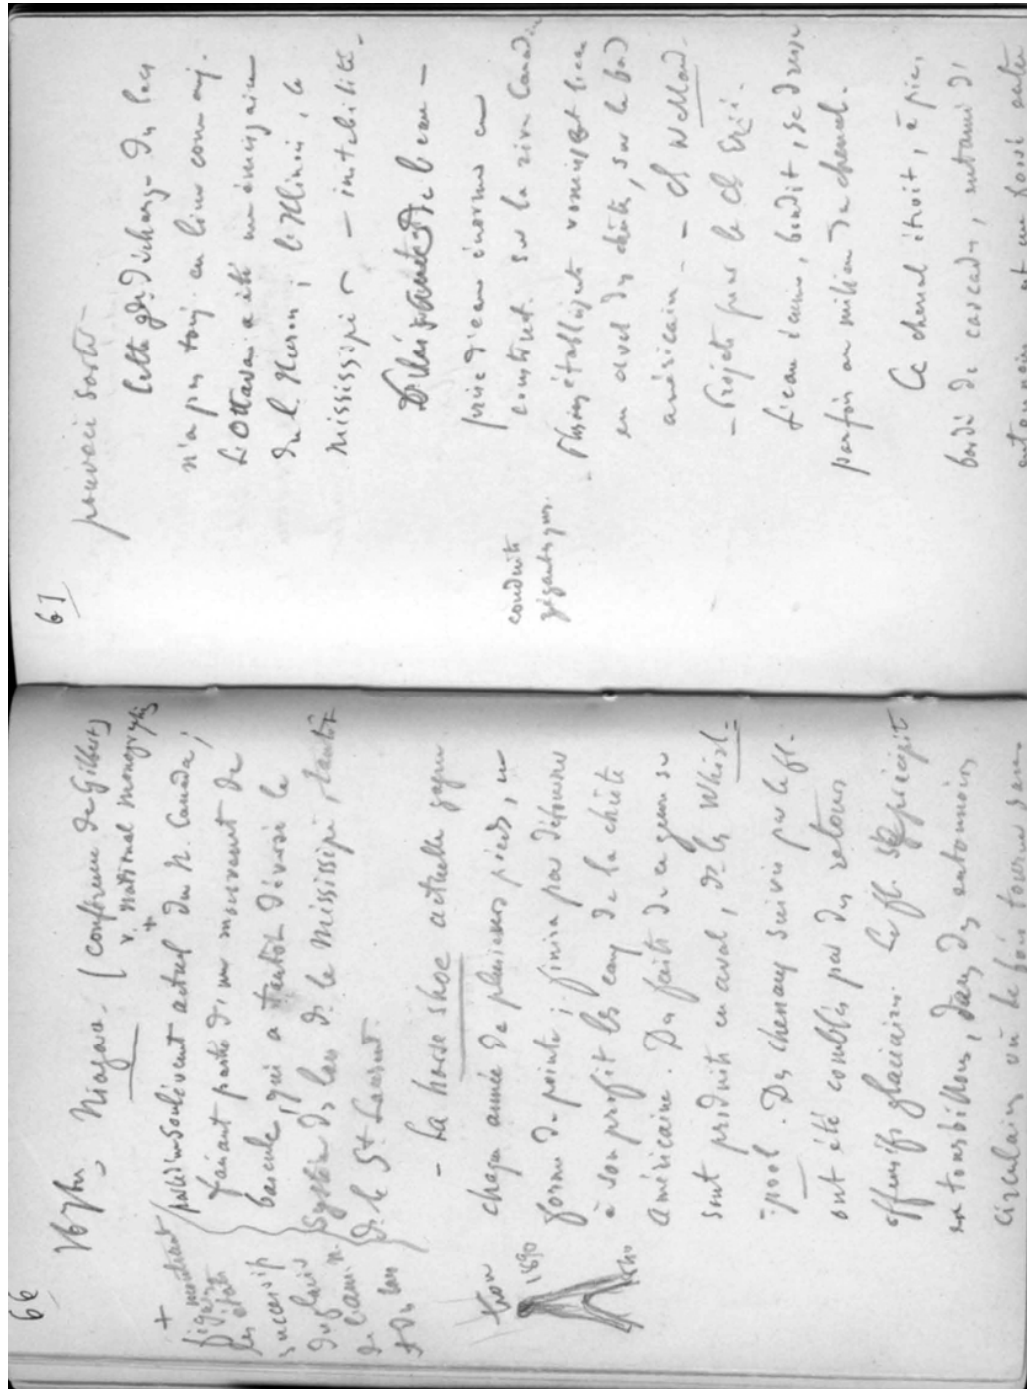 66
Niagara. (conférence de Gilbert)
v. National monographs
+
soulèvement actuel du N. Canada ;
faisant partie d'un mouvement de
bascule, qui a tantôt déversé le
système des lacs ds le Mississipi, tantôt
ds le St Laurent.
+
montrant
figures
les états
successifs
du glacier
de l'am. N.
+ des lacs
- La horse shoe actuelle gagne
chaque année de plusieurs pieds, en
forme de pointe ; finira par détourner
à son profit les eaux de la chûte
américaine. Des faits de ce genre se
sont produits en aval, de là, Whirl-
pool. Des chenaux suivis par le fl.
ont été comblés par des retours
offensifs glaciaires. Le fl. se précipite
en tourbillons, dans des entonnoirs
circulaires où le bois tourne sans
1890
67
pouvoir sortir -
Cette gde décharge des lacs
n'a pas touj. eu lieu comme auj.
L'Ottawa a été un émissaire
du L. Huron ; l'Illinois, le
Mississipi - instabilité -
Puissance de l'eau -
prise d'eau énorme en
construct. sur la rive Canad.
conduite
gigantesque.
- Plusieurs établissements
en aval des chûtes, sur le bord
américain - Cl Welland -
- Projets pour le Cl Erié.
L'eau écume, bondit, se dresse
parfois au milieu du chenal.
Ce chenal étroit, à pic,
bordé de cascades,
entonnoirs, est une fosse